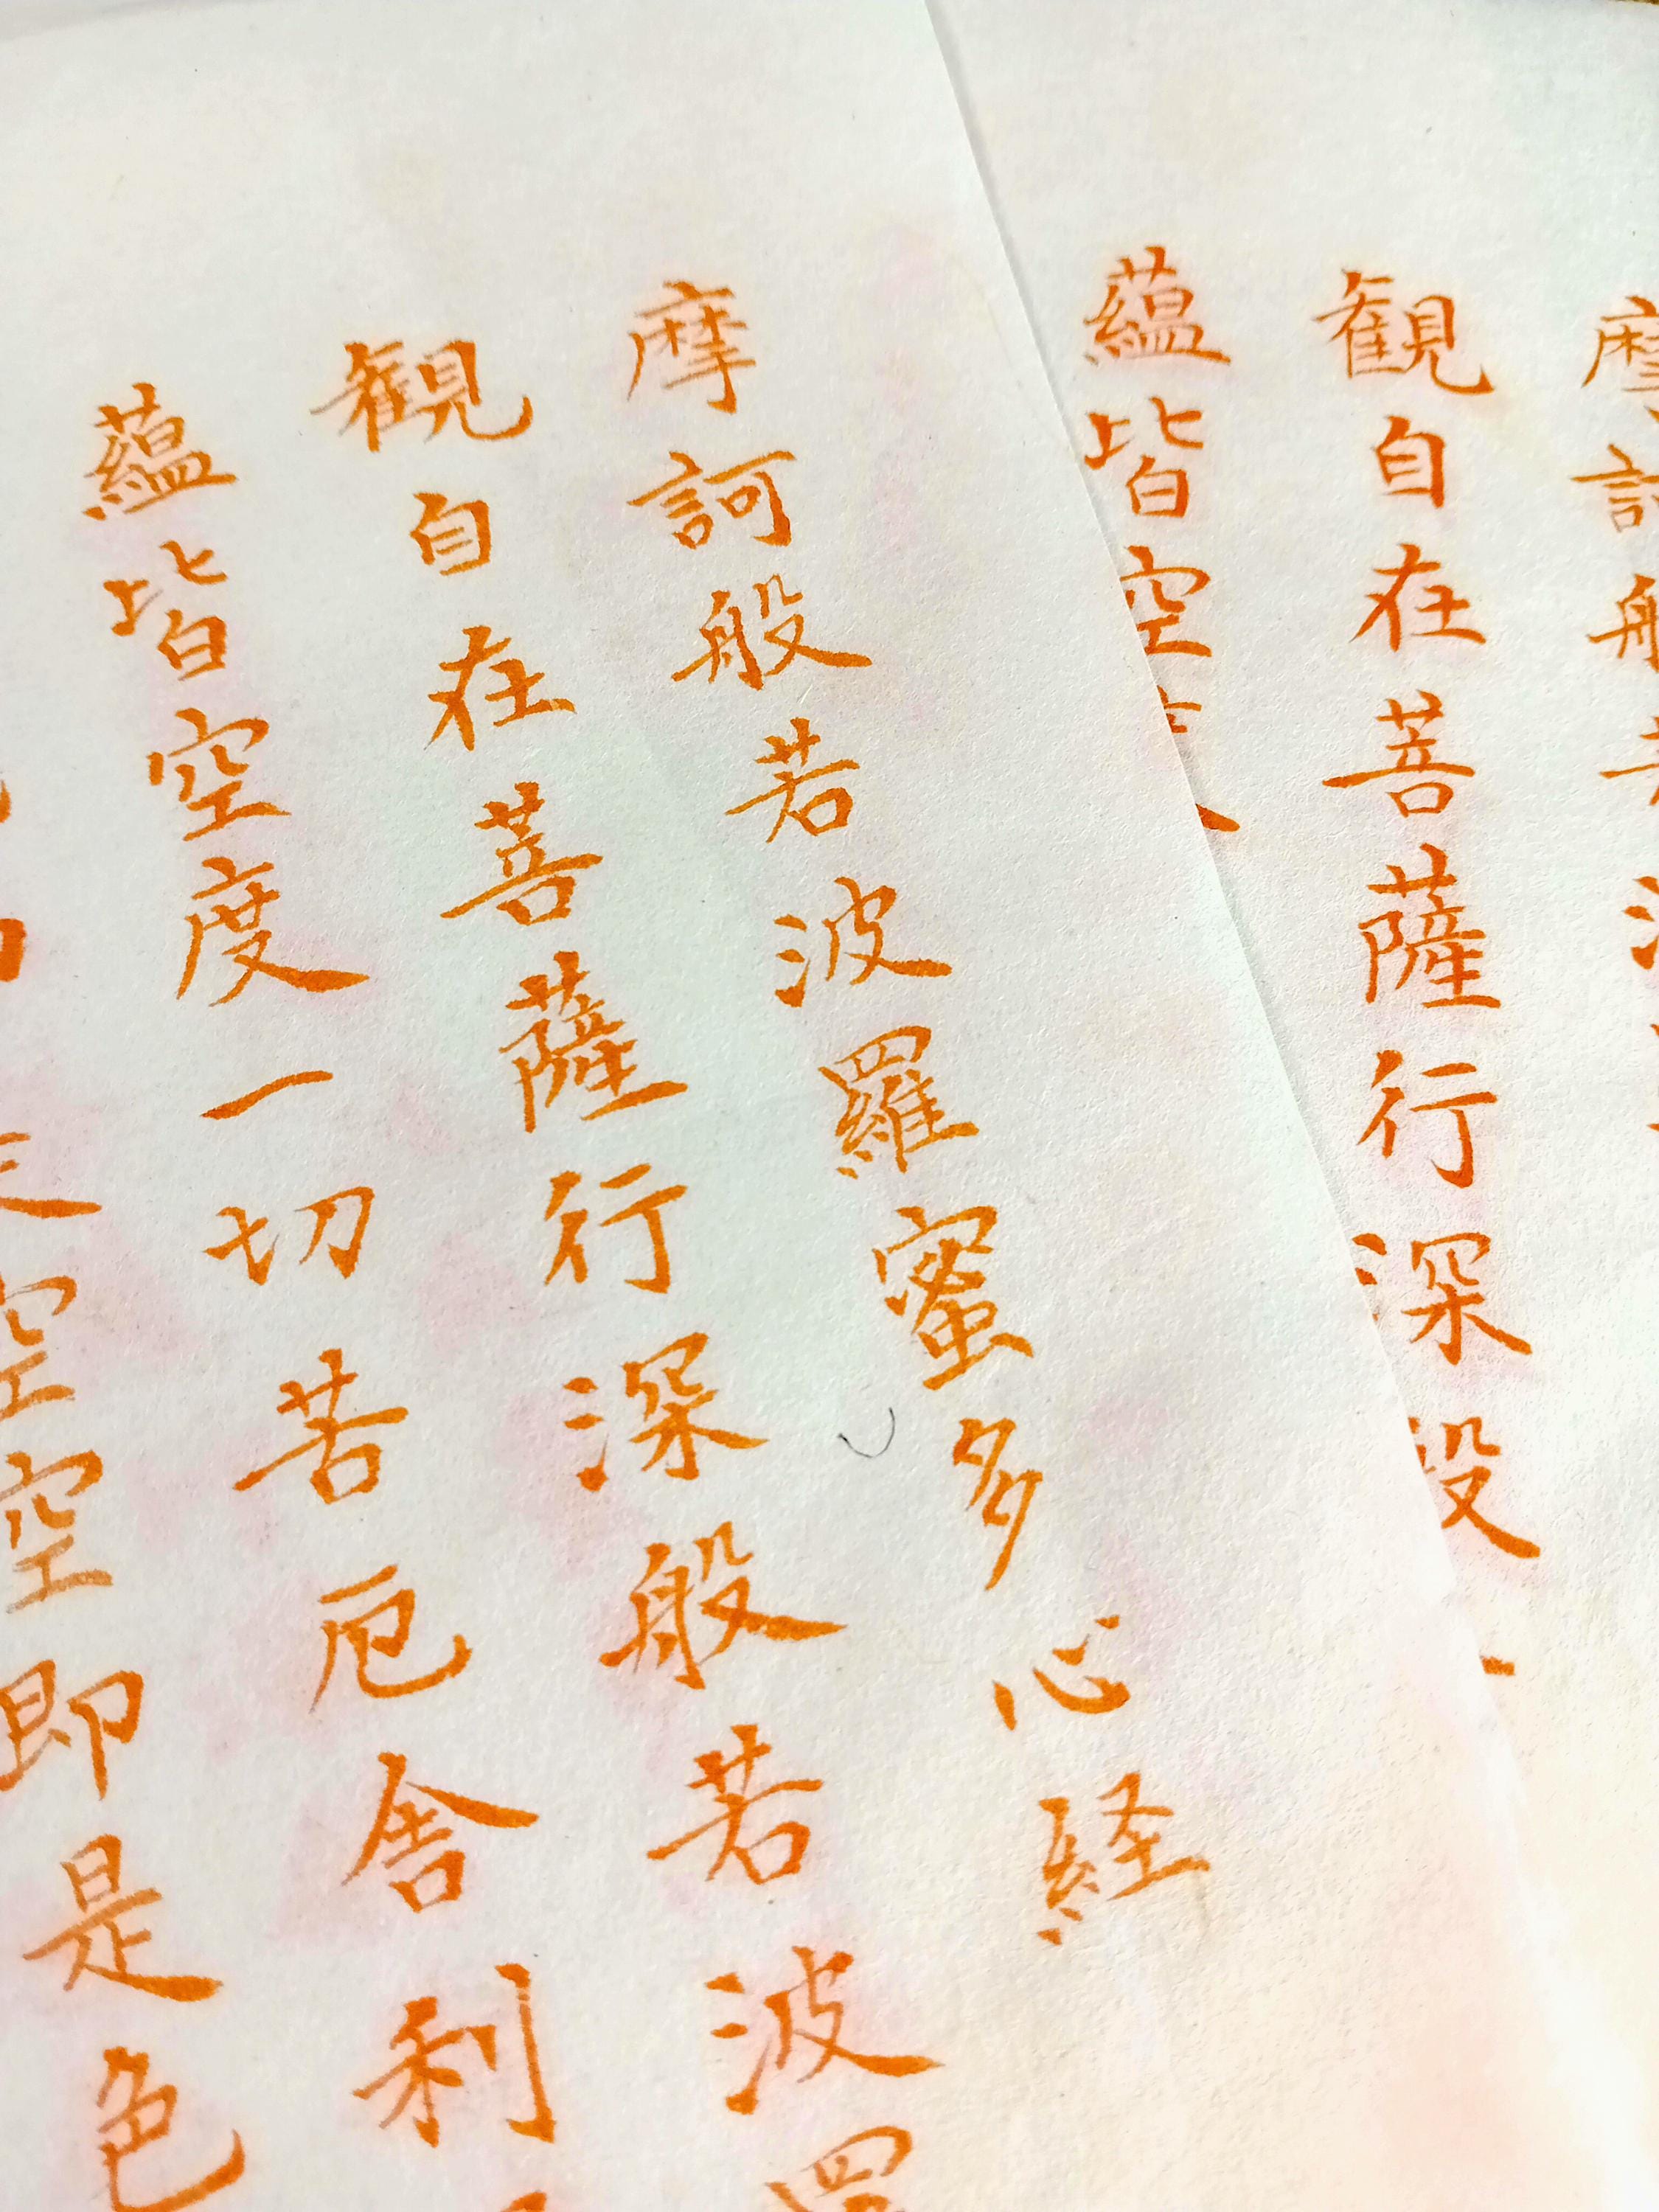 摩訶般若波羅蜜多心経
観自在菩薩行深般若波羅
蘊皆空度一切苦厄舎利
空空即是色
摩訶般若
観自在菩薩行深般
蘊皆空度